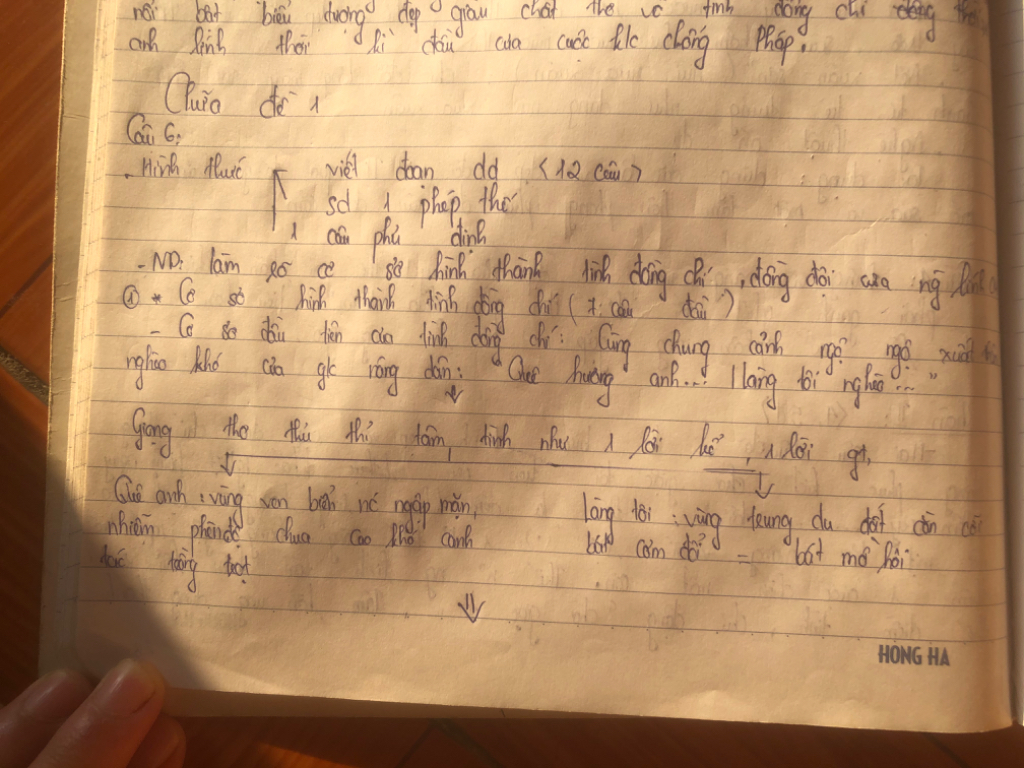 nổi bật biểu tượng đẹp giàu chất thơ về tình đồng chí đồng
anh lính thời kì đầu của cuộc k/c chống Pháp.
Chữa đề 1
Câu 6:
- Hình thức viết đoạn dd <12 câu>
sd 1 phép thế
1 câu phủ định
- ND: làm rõ cơ sở hình thành tình đồng chí, đồng đội của ng lính
① * Cơ sở hình thành tình đồng chí (7 câu đầu)
- Cơ sở đầu tiên của tình đồng chí: Cùng chung cảnh ngộ ngộ xuất
nghèo khó của g/c nông dân: "Quê hương anh... / làng tôi nghèo... "
Giọng thơ thủ thỉ tâm tình như 1 lời kể, 1 lời gt.
Quê anh: vùng ven biển nc ngập mặn, Làng tôi: vùng trung du đất cằn cỗi
nhiễm phèn độ chua cao khó canh bát cơm đổi = bát mồ hôi
tác trồng trọt
HONG HA